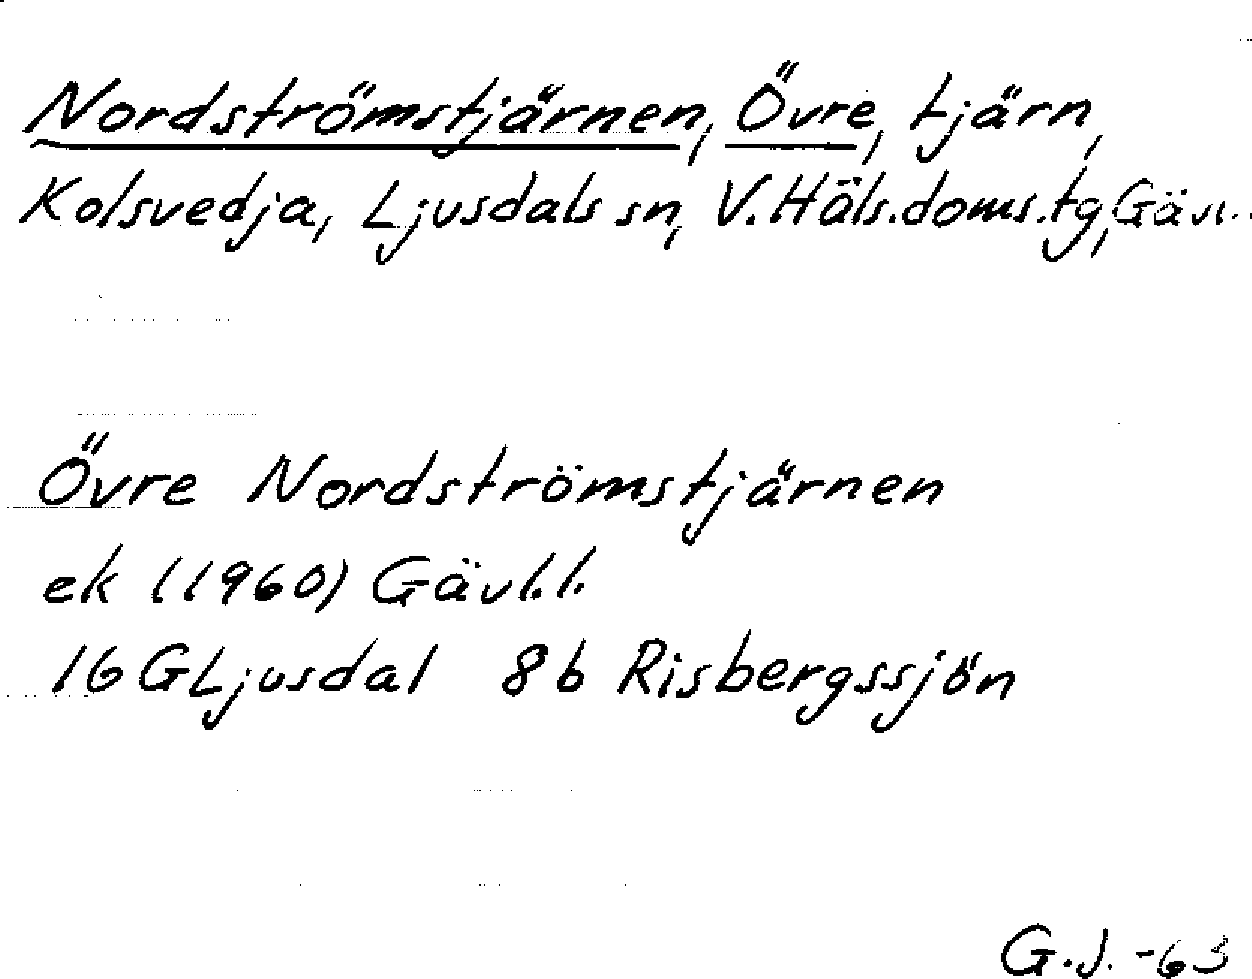 Nordströmstjärnen, Övre, tjärn,
Kolsvedja, Ljusdals sn, V. Häls. doms. tg, Gävl.
Övre Nordströmstjärnen
ek (1960) Gävl.l.
16 G Ljusdal 8 b Risbergssjön
G.J. -63